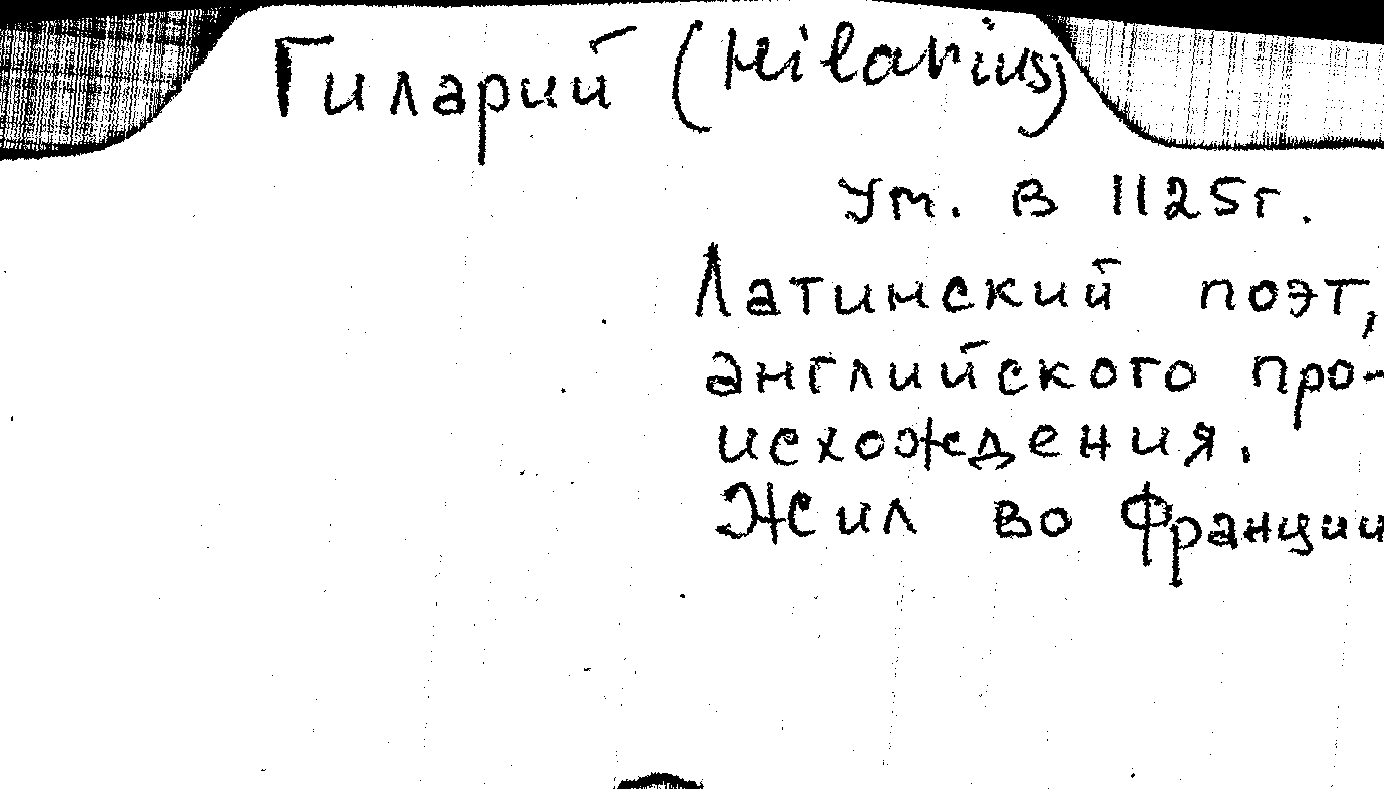 Гиларий (Hilarius)
Ум. в 1125г.
Латинский поэт,
английского про-
исхождения.
Жил во Франции